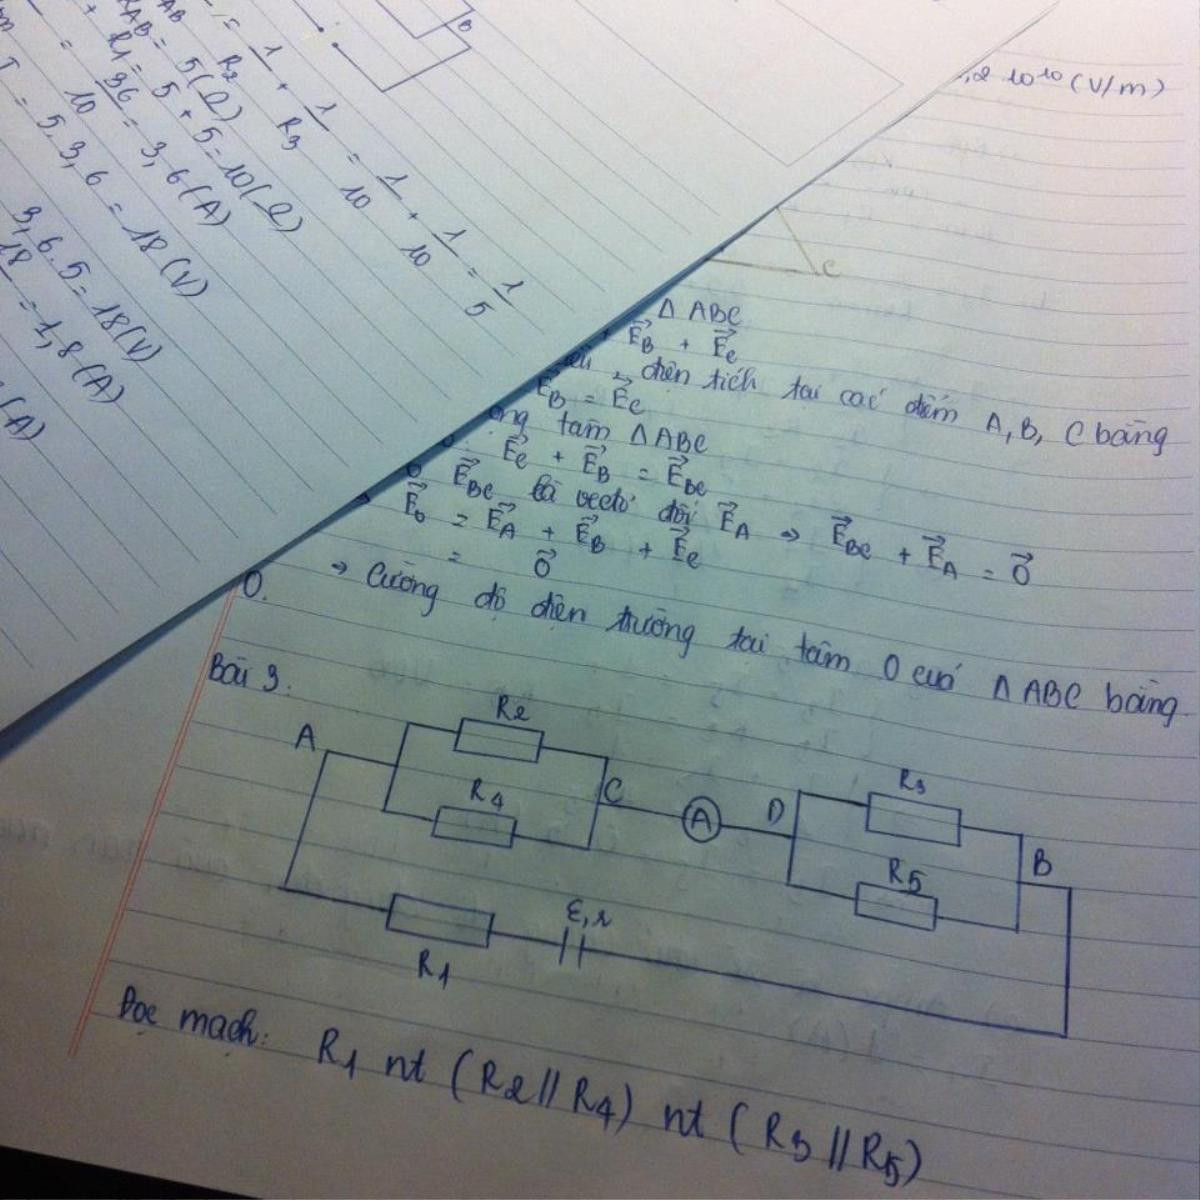 = 1/R2 + 1/R3 = 1/10 + 1/10 = 1/5
RAB = 5(Ω)
R1 = 5 + 5 = 10(Ω)
= 36/10 = 3,6(A)
= 5.3,6 = 18(V)
3,6.5 = 18(V)
18 = 1,8(A)
(A)
B
,2 10^10 (V/m)
C
Δ ABC
E⃗B + E⃗C
điện tích tại các điểm A, B, C bằng
E⃗B = E⃗C
tâm Δ ABC
E⃗C + E⃗B = E⃗BC
E⃗BC là vectơ đối E⃗A → E⃗BC + E⃗A = 0⃗
→ E⃗0 = E⃗A + E⃗B + E⃗C
= 0⃗
→ Cường độ điện trường tại tâm O của Δ ABC bằng
0.
Bài 3.
R2
A
R4
C
A
D
R3
R5
B
ε,r
R1
Đọc mạch: R1 nt (R2 // R4) nt (R3 // R5)